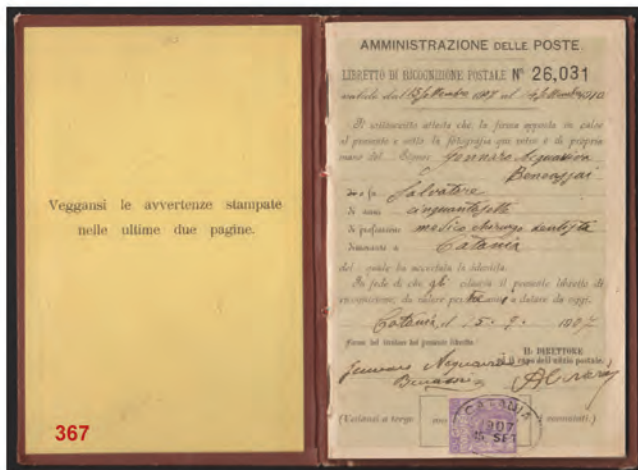 Veggansi le avvertenze stampate
nelle ultime due pagine.
367
AMMINISTRAZIONE DELLE POSTE.
LIBRETTO DI RICOGNIZIONE POSTALE Nº 26,031
valido dal 15 settembre 1907 al settembre 1910
Il sottoscritto attesta che la firma apposta in calce
al presente e sotto la fotografia qui retro è di propria
mano del Signor Gennaro Acquaviva
fu Salvatore
di anni cinquantasette
di professione medico chirurgo dentista
dimorante a Catania
del quale ha accertata la identità.
In fede di che gli rilascia il presente libretto di
ricognizione, da valere per tre anni a datare da oggi.
Catania, il 15 - 9 - 1907
Firma del titolare del presente libretto.
IL DIRETTORE
o il capo dell'ufizio postale.
Gennaro Acquaviva
(Vedansi a tergo
connotati.)
CATANIA
1907
15 SET